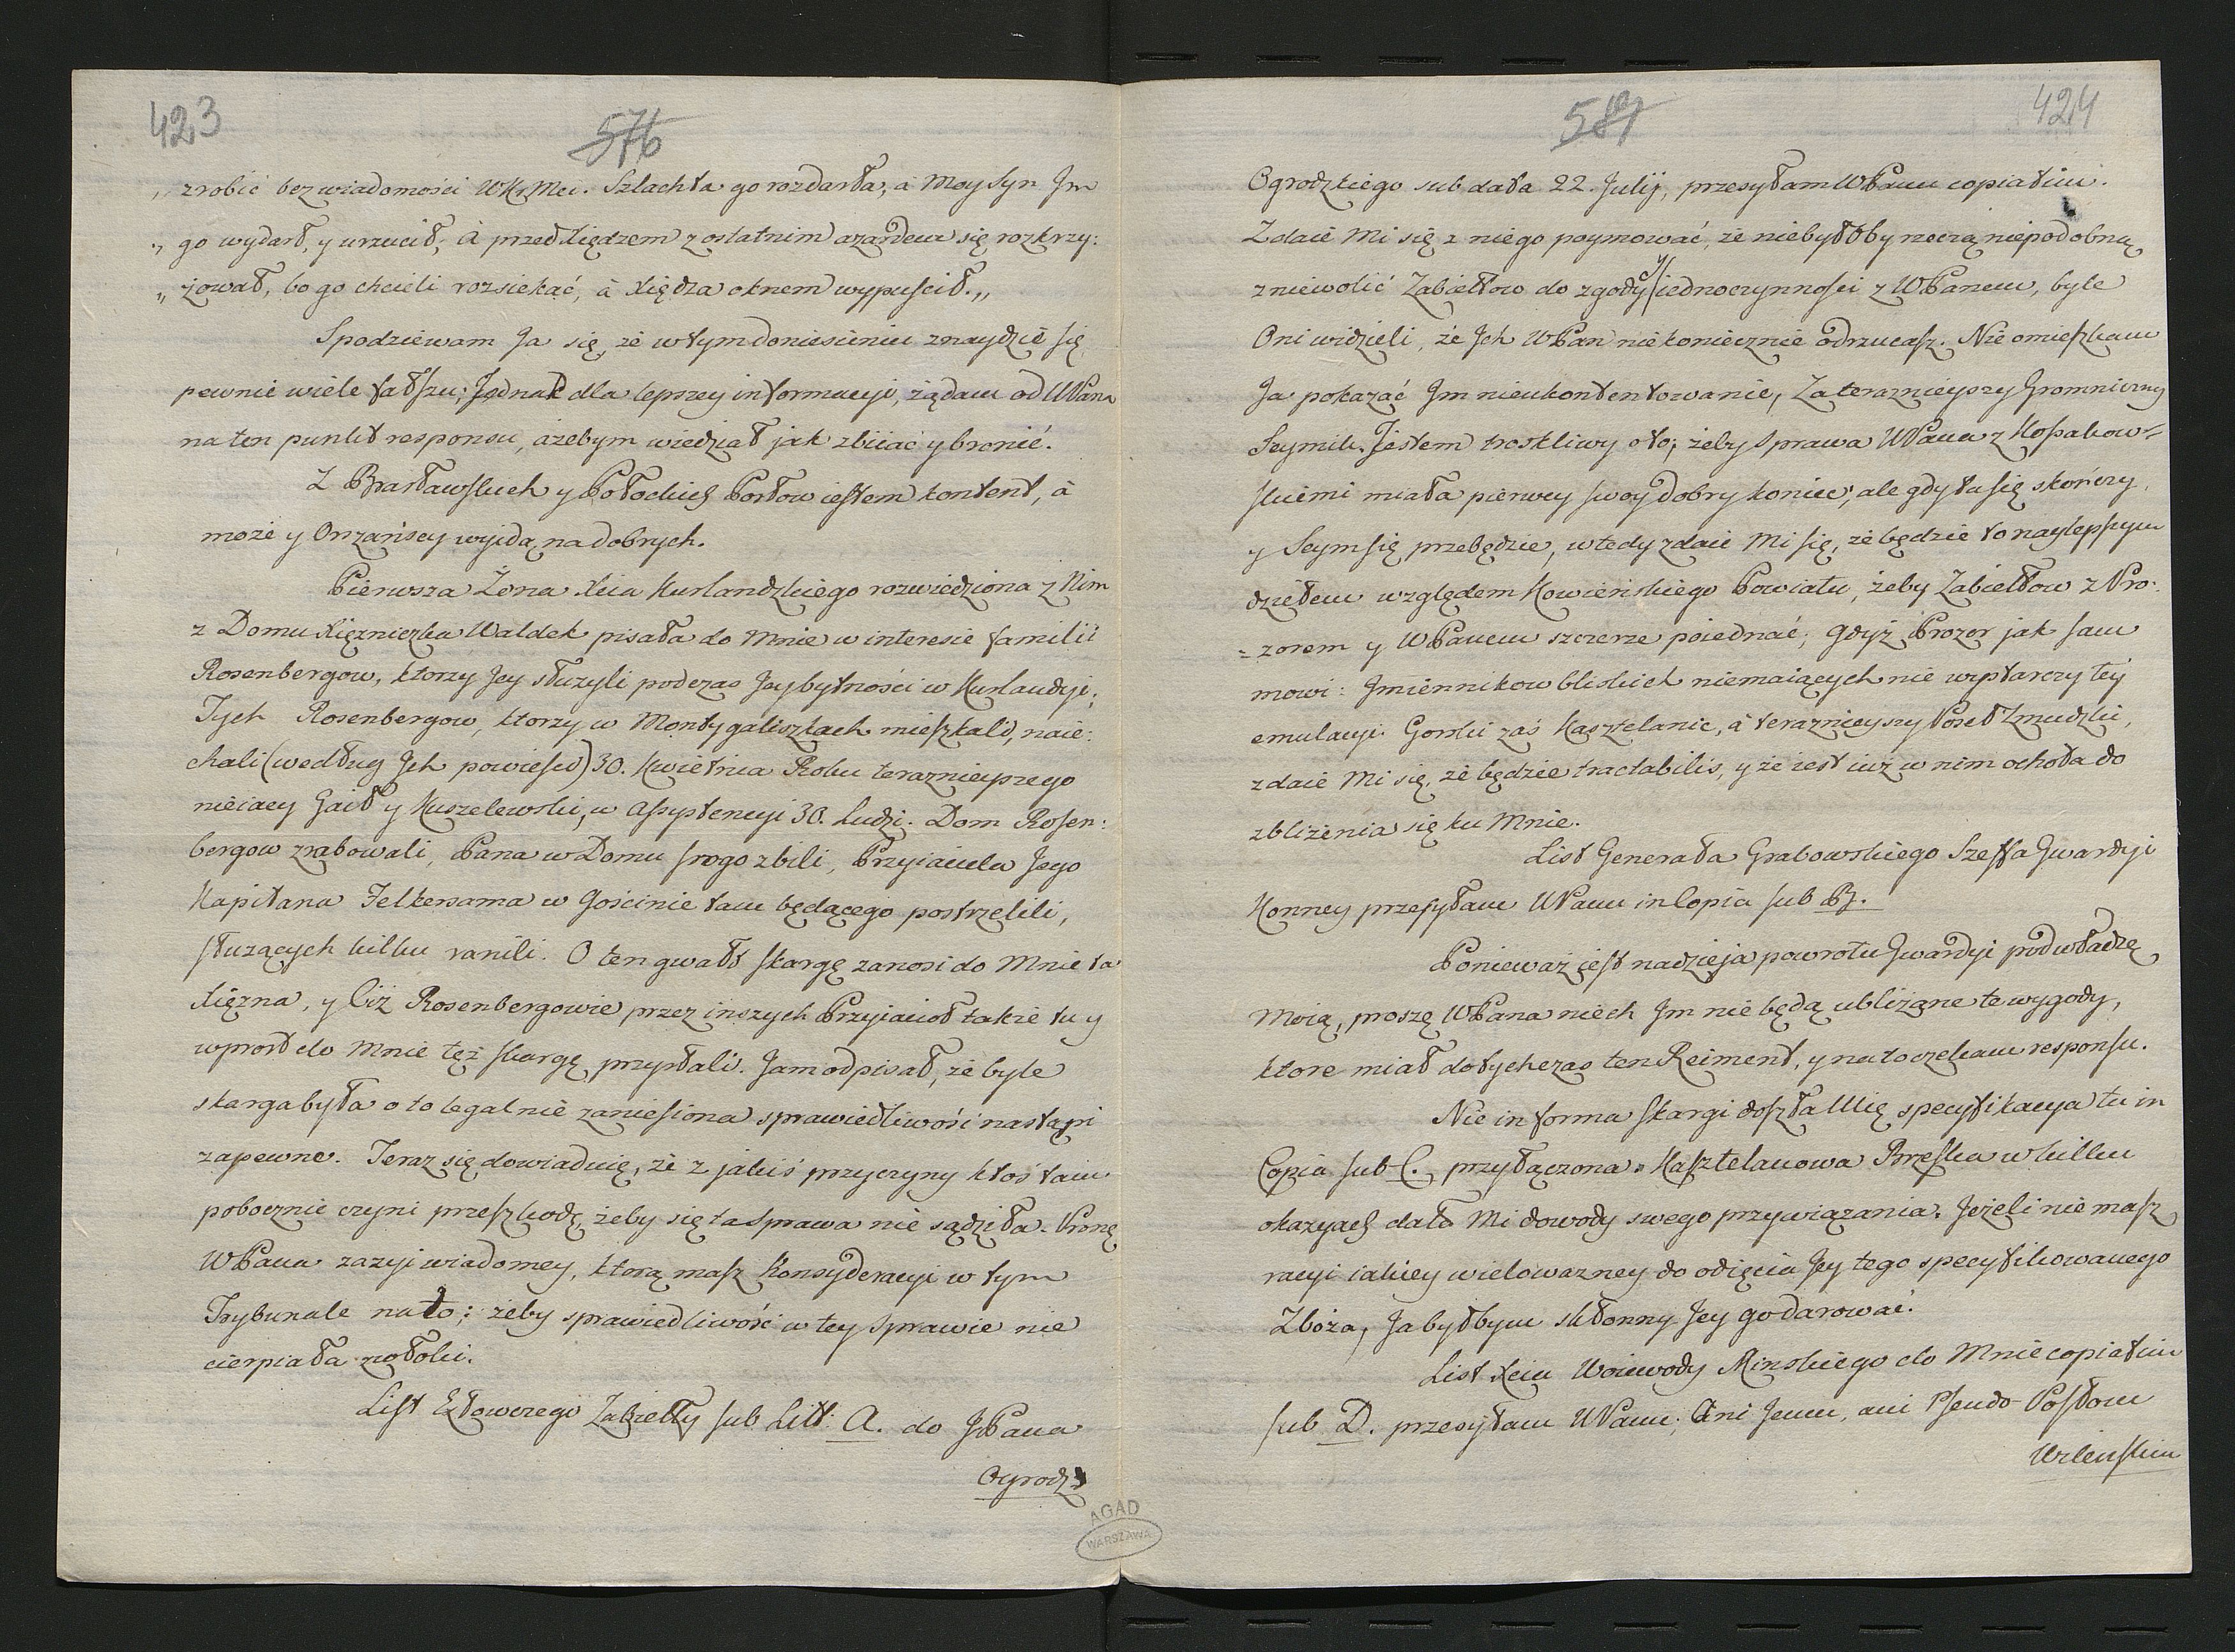 423
576
„ zrobić bez wiadomości WKrMci. Szlachta go rozdarła, à Moy Syn Jm
„ go wydarł, y wrzucił; à przed Xiędzem z ostatnim azardem się rozkrzy:
„ żował, bo go chcieli rozsiekać, à Xiędza oknem wypuscił.„
Spodziewam Ja się, że w tym doniesieniu znaydzie się
pewnie wiele fałszu; Jednak dla lepszey informacyi, żądam od WPana
na ten punkt responsu, ażebym wiedział jak zbiiać y bronić.
Z Brasławskich y Połockich Posłow iestem kontent, à
może y Orszańscy wyidą na dobrych.
Pierwsza Żona Xcia Kurlandzkiego rozwiedziona z Nim
z Domu Xiężniczka Waldek pisała do Mnie w interesie familii
Rosenbergow, ktorzy Jey służyli podczas Jey bytności w Kurlandyi;
Tych Rosenbergow, ktorzy w Montygaliszkach mieszkali, naie:
chali (według Jch powieści) 30. Kwietnia Roku teraznieyszego
nieiacy Gaił y Kuszelewski, w Assystencyi 30. Ludzi. Dom Rosen:
bergow zrąbowali, Pana w Domu srogo zbili, Przyiaciela Jego
Kapitana Felkersama w Gościnie tam będącego postrzelili,
służących kilku ranili. O ten gwałt skargę zanosi do Mnie ta
Xiężna, y Ciż Rosenbergowie przez inszych Przyiacioł takie tu y
wprost do Mnie też skargę przysłali. Jam odpisał, że byle
skarga była o to legalnie zaniesiona sprawiedliwość nastąpi
zapewne. Teraz się dowiaduię, że z jakiś przyczyny ktoś tam
pobocznie czyni przeszkodę, żeby się ta Sprawa nie sądziła. Proszę
WPana zazyi wiadomey, ktorą masz Konsyderacyi w tym
Trybunale na to; żeby sprawiedliwość w tey Sprawie nie
cierpiała zwłoki.
List Łowczego Zabiełły sub Litt: A. do JPana
Ogrodz
AGAD
WARSZAWA
424
Ogrodzkiego sub data 22. Julij, przesyłam WPanu copiatim.
Zdaie Mi się z niego poymować, że niebyłoby rzeczą niepodobną
zniewolić Zabiełłow do zgody y iednoczynności z WPanem, byle
Oni widzieli, że Jch WPan niekoniecznie odrzucasz. Nie omieszkam
Ja pokazać Jm nieukontentowanie, za teraznieyszy Gromniczny
Seymik. Jestem troskliwy o to, żeby Sprawa WPana z Kossakow-
skiemi miała pierwey swoy dobry koniec; ale gdy ta się skończy,
y Seym się przebędzie, wtedy zdaie Mi się, że będzie to naylepszym
dziełem względem Kowieńskiego Powiatu, żeby Zabiełłow z Pro:
=zorem y WPanem szczerze poiednać; gdyż Prozor jak sam
mowi: Jmiennikow bliskich niemaiących nie wystarczy tey
emulacyi. Gorski zaś Kasztelanic, à teraznieyszy Poseł Zmudzki,
zdaie Mi się, że będzie tractabilis, y że iest iuż w nim ochota do
zbliżenia się ku Mnie.
List Generała Grabowskiego Szeffa Gwardyi
Konney przesyłam WPanu in Copia sub B.
Ponieważ iest nadzieja powrotu Gwardyi pod władzę
Moią, proszę WPana niech Jm nie będą ubliżane te wygody,
ktore miał dotychczas ten Reiment, y na to czekam responsu.
Nie in forma skargi doszła Mię specyfikacya tu in
Copia sub C. przyłączona. Kasztelanowa Brzeska w kilku
okazyach dała Mi dowody swego przywiązania. Jeżeli nie masz
racyi iakiey wieloważney do odięcia Jey tego specyfikowanego
Zboża, Ja byłbym skłonny Jey go darować.
List Xcia Woiewody Minskiego do Mnie copiatim
sub D. przesyłam WPanu; Ani Jemu, ani Pseudo-Posłom
Wilenskim